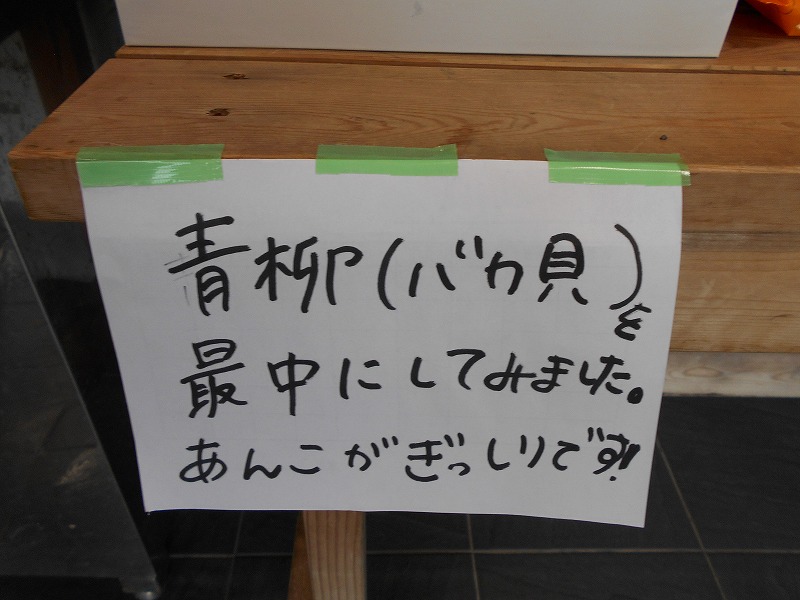 青柳(バカ貝)を
最中にしてみました。
あんこがぎっしりです!